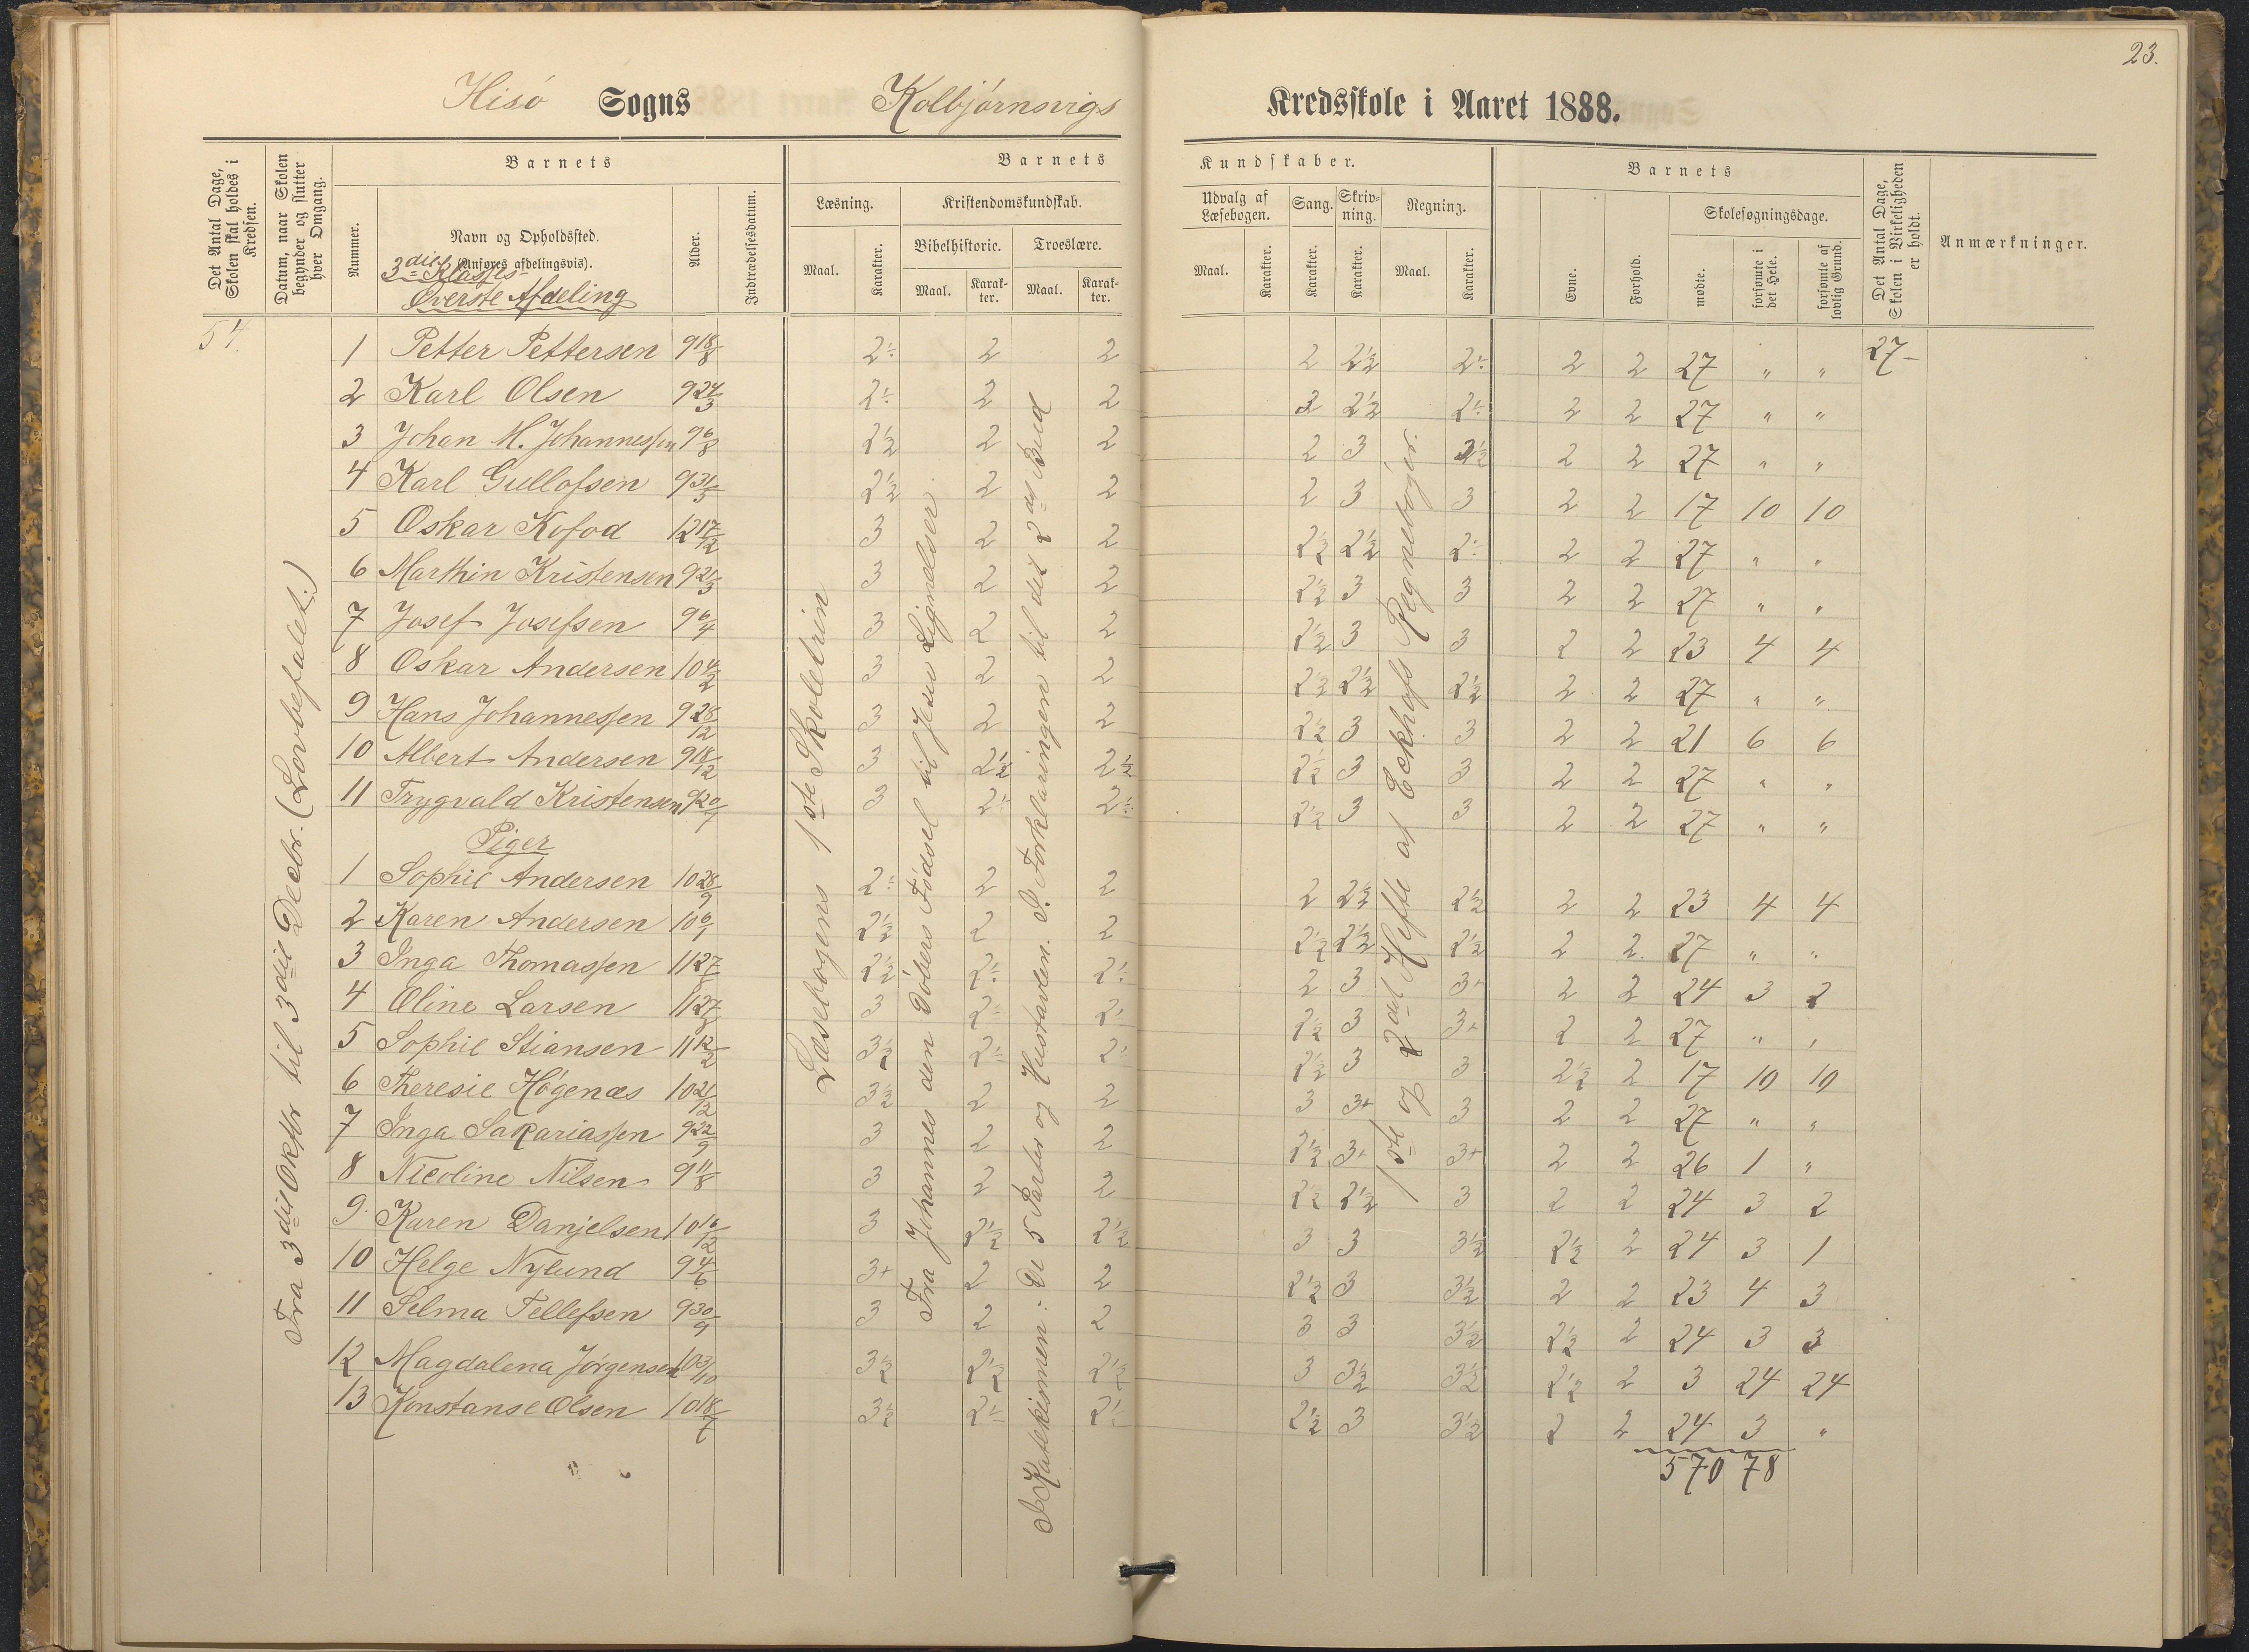 23.
Hisö Sogns Kolbjörnsvigs Kredsskole i Aaret 1888.
Det Antal Dage, Skolen skal holdes i Kredsen.
Datum, naar Skolen begynder og slutter hver Omgang.
Barnets
Nummer.
Navn og Opholdssted.
(Anføres afdelingsvis).
3die Klasses
Øverste Afdeling
Alder.
Indtrædelsesdatum.
Barnets Kundskaber.
Læsning.
Maal.
Karakter.
Kristendomskundskab.
Bibelhistorie.
Maal.
Karakter.
Troeslære.
Maal.
Karakter.
Udvalg af Læsebogen.
Maal.
Karakter.
Sang.
Karakter.
Skrivning.
Karakter.
Regning.
Maal.
Karakter.
Barnets
Evne.
Forhold.
Skolesøgningsdage.
mødte.
forsømte i det Hele.
forsømte af lovlig Grund.
Det Antal Dage, Skolen i Virkeligheden er holdt.
Anmærkninger.
54.
Fra 3die Oktbr til 3die Decbr. (Lovbefalet.)
Læsebogens 1ste Skoletrin
Fra Johannes den Døbers Fødsel til Jesu Lignelser.
I Katekismen: De 5 Parter og Hustavlen. I Forklaringen til det 2det Bud
1ste og 2det Hefte af Eckhofs Regnebøger.
1 Petter Pettersen 9 18/8 2÷ 2 2 2 2½ 2÷ 2 2 27 " " 27
2 Karl Olsen 9 24/3 2÷ 2 2 3 2½ 2÷ 2 2 27 " "
3 Johan M. Johannessen 9 6/8 2½ 2 2 2 3 2½ 2 2 27 " "
4 Karl Gullofsen 9 31/5 2½ 2 2 2 3 3 2 2 17 10 10
5 Oskar Kofod 12 17/12 3 2 2 2½ 2½ 2÷ 2 2 27 " "
6 Marthin Kristensen 9 21/3 3 2 2 2½ 3 3 2 2 27 " "
7 Josef Josefsen 9 6/4 3 2 2 2½ 3 3 2 2 23 4 4
8 Oskar Andersen 10 4/2 3 2 2 2½ 2½ 2½ 2 2 27 " "
9 Hans Johannessen 9 28/12 3 2 2 2½ 3 3 2 2 21 6 6
10 Albert Andersen 9 18/12 3 2½ 2½ 2½ 3 3 2 2 27 " "
11 Trygvald Kristensen 9 20/7 3 2÷ 2÷ 2½ 3 3 2 2 27 " "
Piger
1 Sophie Andersen 10 28/9 2÷ 2 2 2 2½ 2½ 2 2 23 4 4
2 Karen Andersen 10 6/1 2½ 2 2 2½ 2½ 2½ 2 2 27 " "
3 Inga Thomassen 11 27 2½ 2÷ 2÷ 2 3 3+ 2 2 24 3 2
4 Oline Larsen 11 27 3 2÷ 2÷ 2½ 3 3+ 2 2 27 " "
5 Sophie Stiansen 11 12/2 3½ 2÷ 2÷ 2½ 3 3 2½ 2 17 10 10
6 Theresie Høgenæs 10 21/12 3½ 2 2 3 3+ 3 2 2 27 " "
7 Inga Sakariassen 9 22/9 3 2 2 2½ 3+ 3+ 2 2 26 1 "
8 Nicoline Nilsen 9 11/8 3 2 2 2½ 2½ 3 2 2 24 3 2
9. Karen Danjelsen 10 16/12 3 2½ 2½ 3 3 3½ 2½ 2 24 3 1
10 Helge Nylund 9 4/6 3+ 2 2 2½ 3 3½ 2 2 23 4 3
11 Selma Tellefsen 9 30/9 3 2 2 3 3 3½ 2½ 2 24 3 3
12 Magdalena Jørgensen 10 3/10 3½ 2½ 2½ 3 3½ 3½ 2½ 2 3 24 24
13 Konstanse Olsen 10 18/7 3½ 2÷ 2÷ 2½ 3 3½ 2 2 24 3 "
570 78